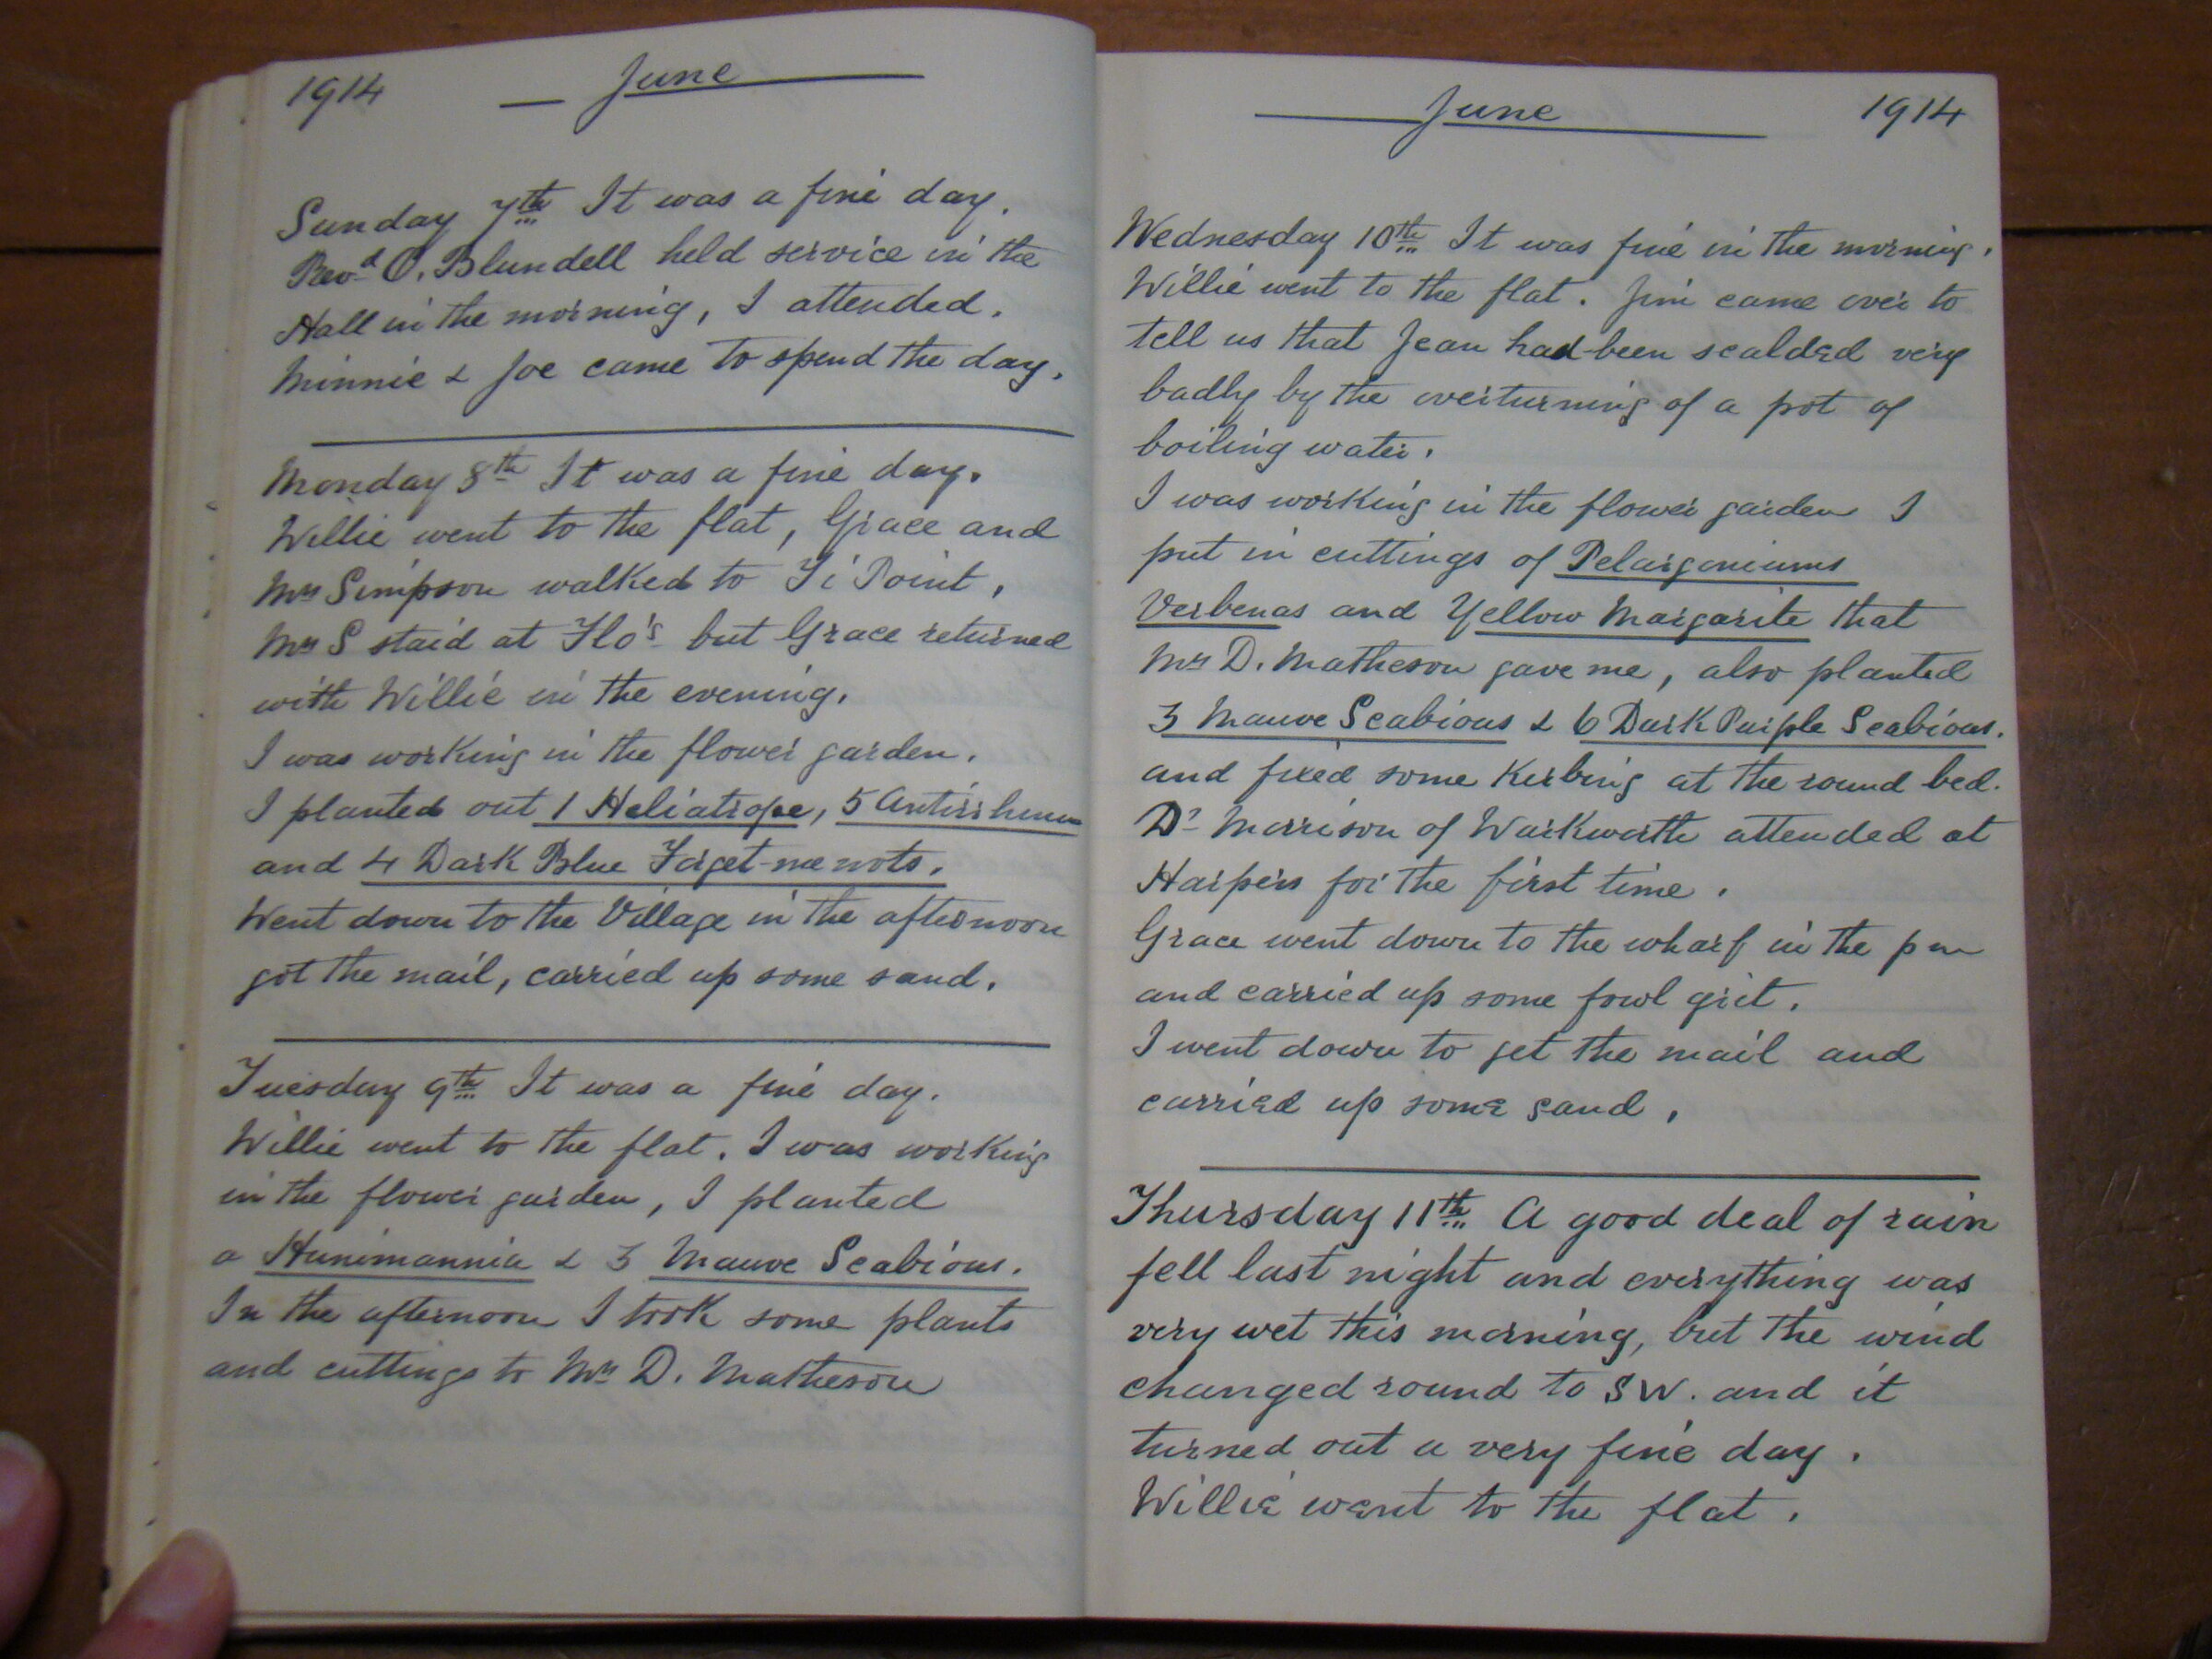 1914 June
Sunday 7th It was a fine day.
Revd O. Blundell held service in the
Hall in the morning, I attended.
Minnie & Joe came to spend the day.
Monday 8th It was a fine day.
Willie went to the flat, Grace and
Mrs Simpson walked to Ti Point,
Mrs S staid at Flo's but Grace returned
with Willie in the evening.
I was working in the flower garden.
I planted out 1 Heliatrope, 5 Antirrhinum
and 4 Dark Blue Forget-me nots.
Went down to the Village in the afternoon
got the mail, carried up some sand.
Tuesday 9th It was a fine day.
Willie went to the flat. I was working
in the flower garden, I planted
a Hunimannia & 3 Mauve Scabious.
In the afternoon I took some plants
and cuttings to Mrs D. Matheson
June 1914
Wednesday 10th It was fine in the morning.
Willie went to the flat. Jim came over to
tell us that Jean had been scalded very
badly by the overturning of a pot of
boiling water.
I was working in the flower garden I
put in cuttings of Pelargoniums
Verbenas and Yellow Margarite that
Mrs D. Matheson gave me, also planted
3 Mauve Scabious & 6 Dark Purple Scabious.
and fixed some Kerbing at the round bed.
Dr Morrison of Warkworth attended at
Harpers for the first time.
Grace went down to the wharf in the pm
and carried up some fowl grit.
I went down to get the mail and
carried up some sand.
Thursday 11th A good deal of rain
fell last night and everything was
very wet this morning, but the wind
changed round to SW. and it
turned out a very fine day.
Willie went to the flat.